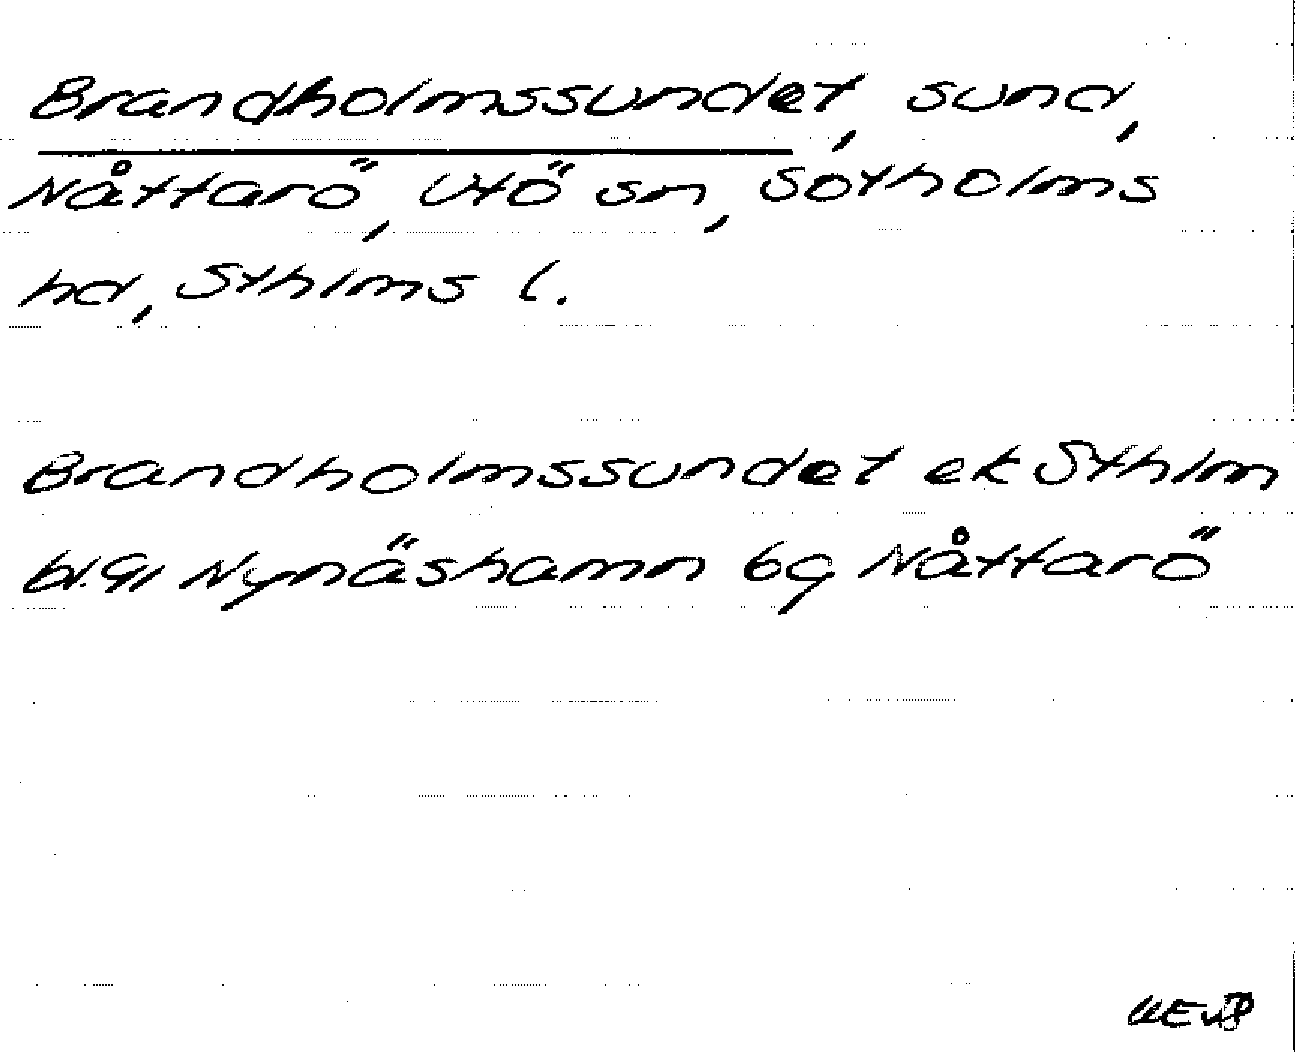 Brandholmssundet, sund,
Nåttarö, Utö sn, Sotholms
hd, Sthlms l.
Brandholmssundet ek Sthlm
bl. 91 Nynäshamn 6g Nåttarö